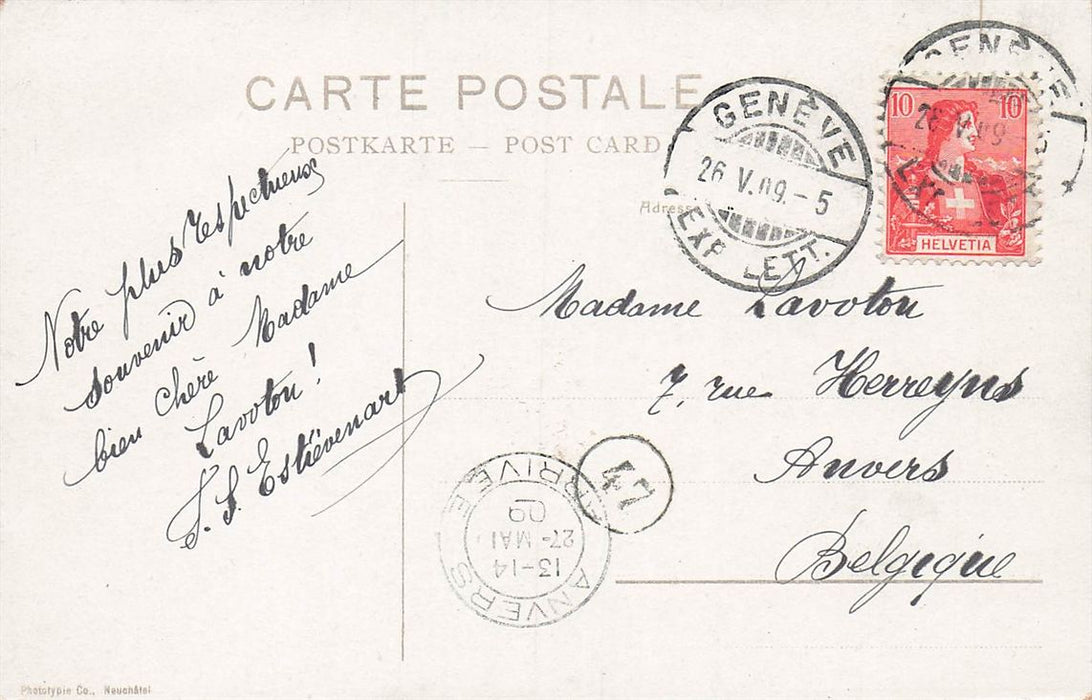 CARTE POSTALE
POSTKARTE — POST CARD
Adresse
GENÈVE
26 V.09.-5
EXP. LETT.
GENÈVE
26 V.09
EXP.
10 10
HELVETIA
Notre plus respectueux
souvenir à notre
bien chère Madame
Lavoton!
S. S. Estiévenart
Madame Lavoton
7, rue Herreyns
Anvers
Belgique
47
ANVERS
13-14
27-MAI
09
ARRIVÉE
Phototypie Co., Neuchâtel